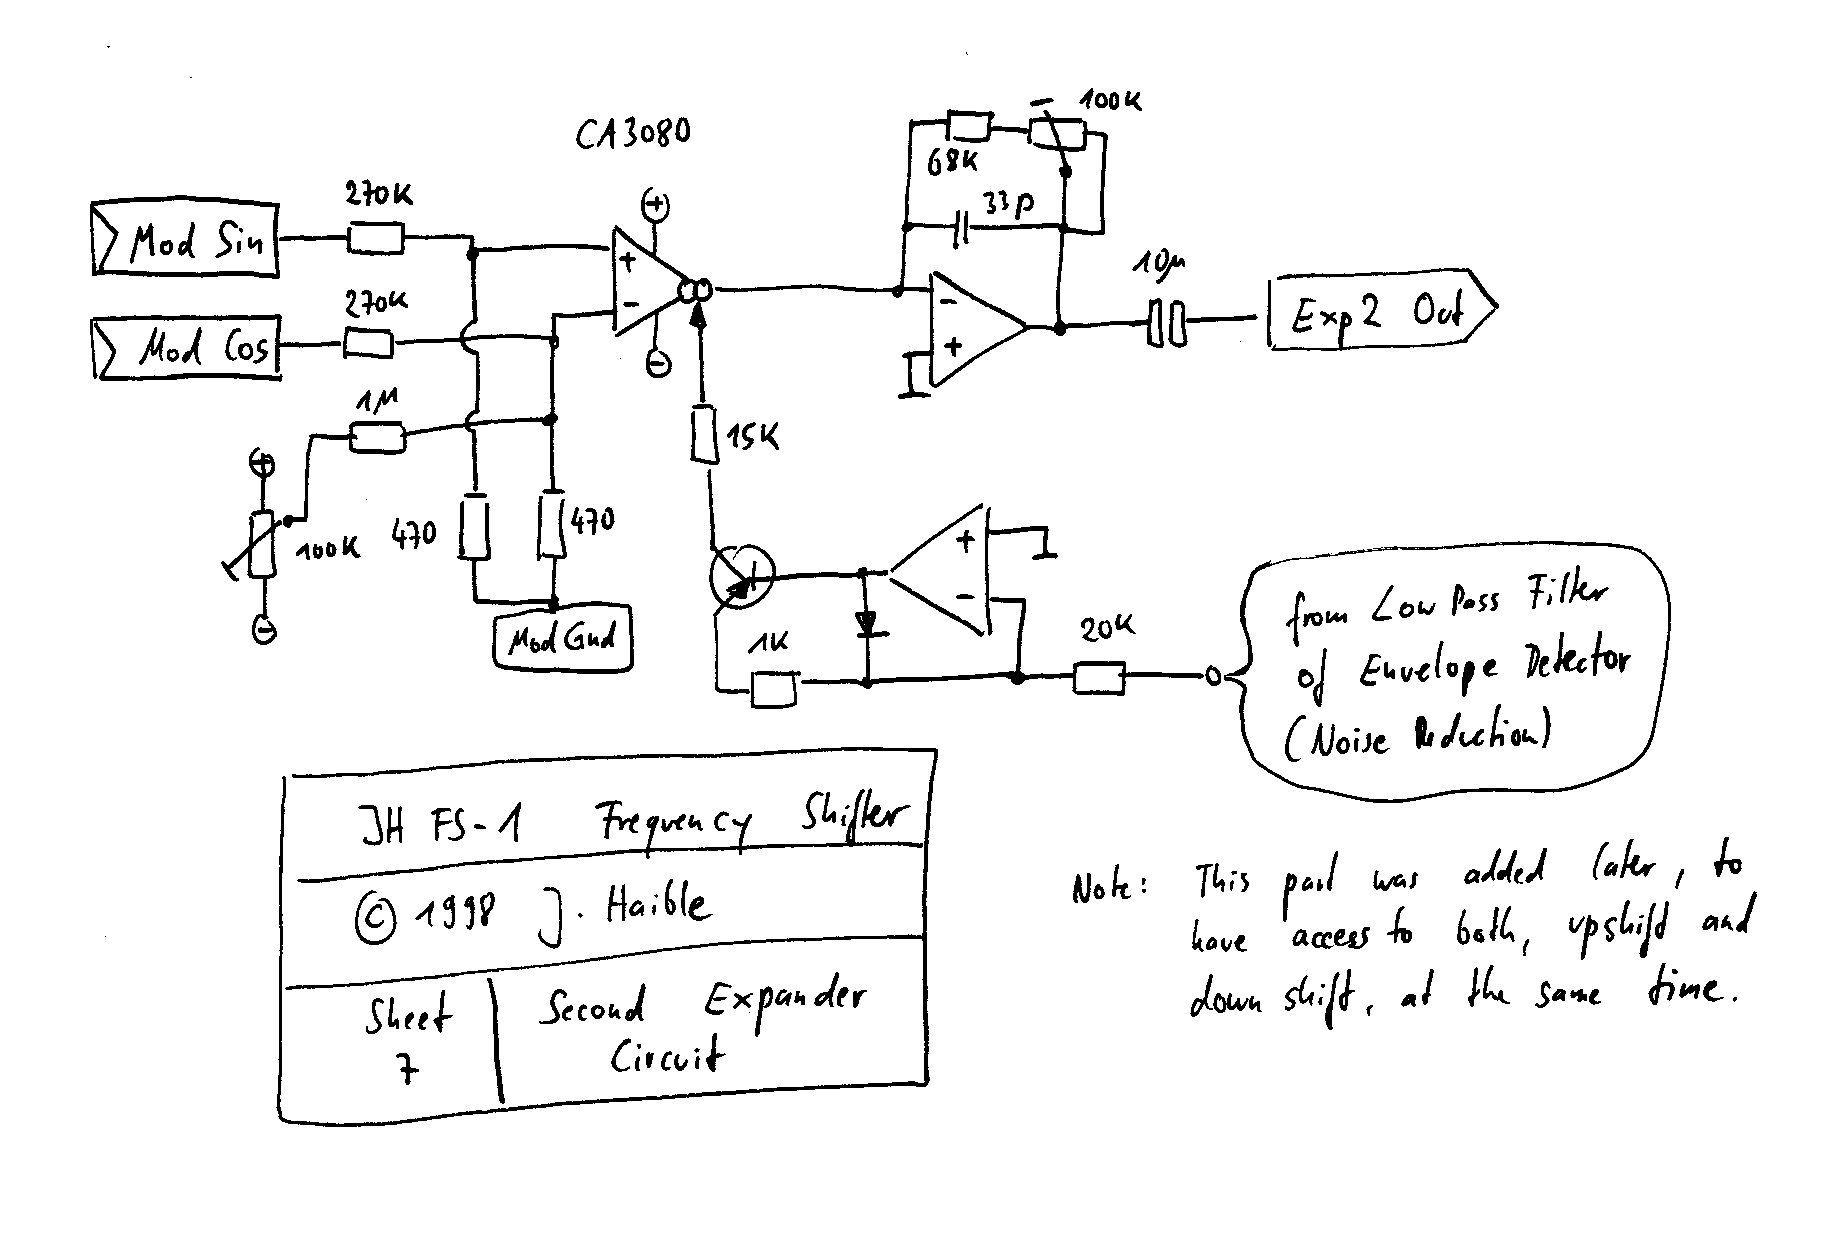 CA3080
100K
68K
33p
270K
Mod Sin
+
-
270K
Mod Cos
10µ
Exp2 Out
-
+
1M
15K
+
-
100K
470
470
+
-
Mod Gnd
1K
20K
from Low Pass Filter
of Envelope Detector
(Noise Reduction)
JH FS-1 Frequency Shifter
© 1998 J. Haible
Sheet
7
Second Expander
Circuit
Note: This part was added later, to
have access to both, upshift and
down shift, at the same time.